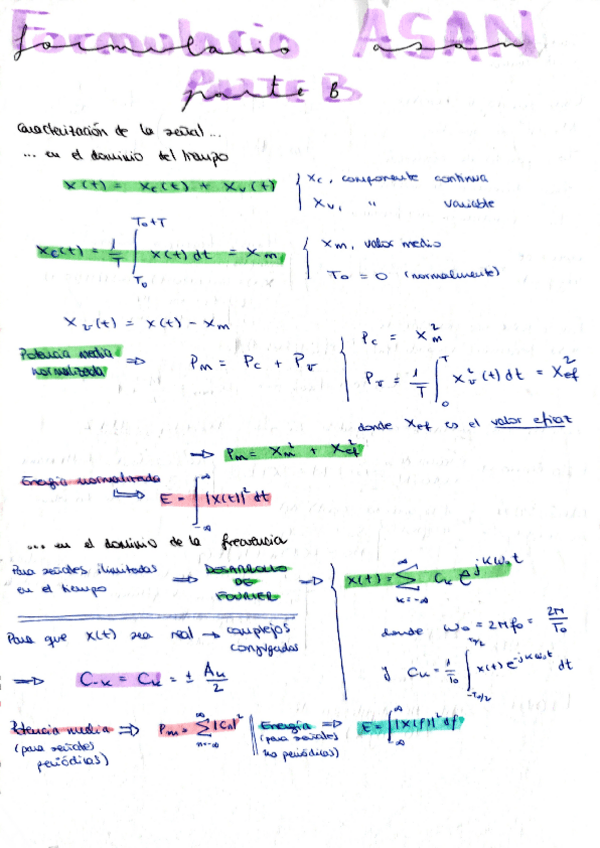 Formulario ASAN
formulario asan
Parte B
parte B
Caracterización de la señal...
... en el dominio del tiempo
x(t) = xc(t) + xv(t) { xc, componente continua
xv, " variable
xc(t) = 1/T ∫_{To}^{To+T} x(t) dt = xm { xm, valor medio
To = 0 (normalmente)
xv(t) = x(t) - xm
Potencia media normalizada ⇒ Pm = Pc + Pv { Pc = xm²
Pv = 1/T ∫_0^T xv²(t) dt = xef²
donde xef es el valor eficaz
→ Pm = xm² + xef²
Energía normalizada
↳ E = ∫_{-∞}^{∞} |x(t)|² dt
... en el dominio de la frecuencia
Para señales ilimitadas en el tiempo ⇒ DESARROLLO DE FOURIER ⇒ { x(t) = Σ_{k=-∞}^{∞} Ck e^{jkω₀t}
donde ω₀ = 2πf₀ = 2π/T₀
y Ck = 1/T₀ ∫_{-T₀/2}^{T₀/2} x(t) e^{-jkω₀t} dt
Para que x(t) sea real → complejos conjugados
⇒ C-k = Ck = ± Ak/2
Potencia media ⇒ Pm = Σ_{n=-∞}^{∞} |Cn|² || Energía ⇒ E = ∫_{-∞}^{∞} |X(f)|² df
(para señales periódicas) (para señales no periódicas)